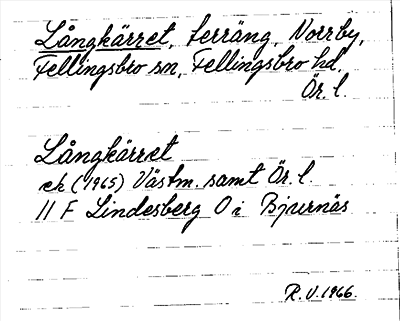 Långkärret, terräng, Norrby,
Fellingsbro sn, Fellingsbro hd.
Ör. l.
Långkärret
ek (1965) Västm. samt Ör. l.
11 F Lindesberg O i Bjurnäs
R.V. 1966.